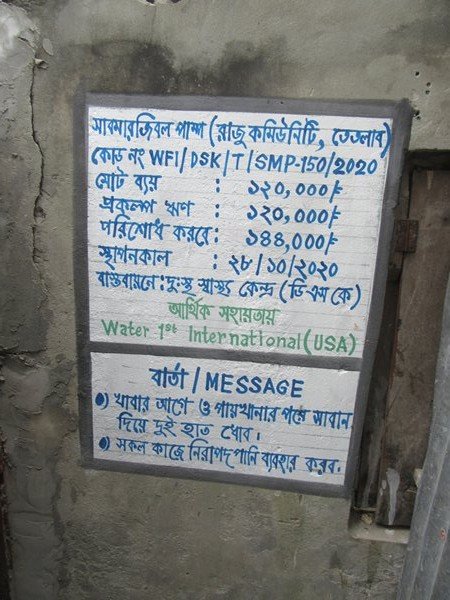 সাবমারজিবল পাম্প (রাজু কমিউনিটি, তেতলাব)
কোড নং WFI/DSK/T/SMP-150/2020
মোট ব্যয় : ১২০,০০০/-
প্রকল্প ঋণ : ১২০,০০০/-
পরিশোধ করবে: ১৪৪,০০০/-
স্থাপনকাল : ২৮/১০/২০২০
বাস্তবায়নে: দুঃস্থ স্বাস্থ্য কেন্দ্র (ডি এস কে)
আর্থিক সহায়তায়
Water 1st International (USA)
বার্তা / MESSAGE
১) খাবার আগে ও পায়খানার পরে সাবান
দিয়ে দুই হাত ধোব।
২) সকল কাজে নিরাপদ পানি ব্যবহার করব.